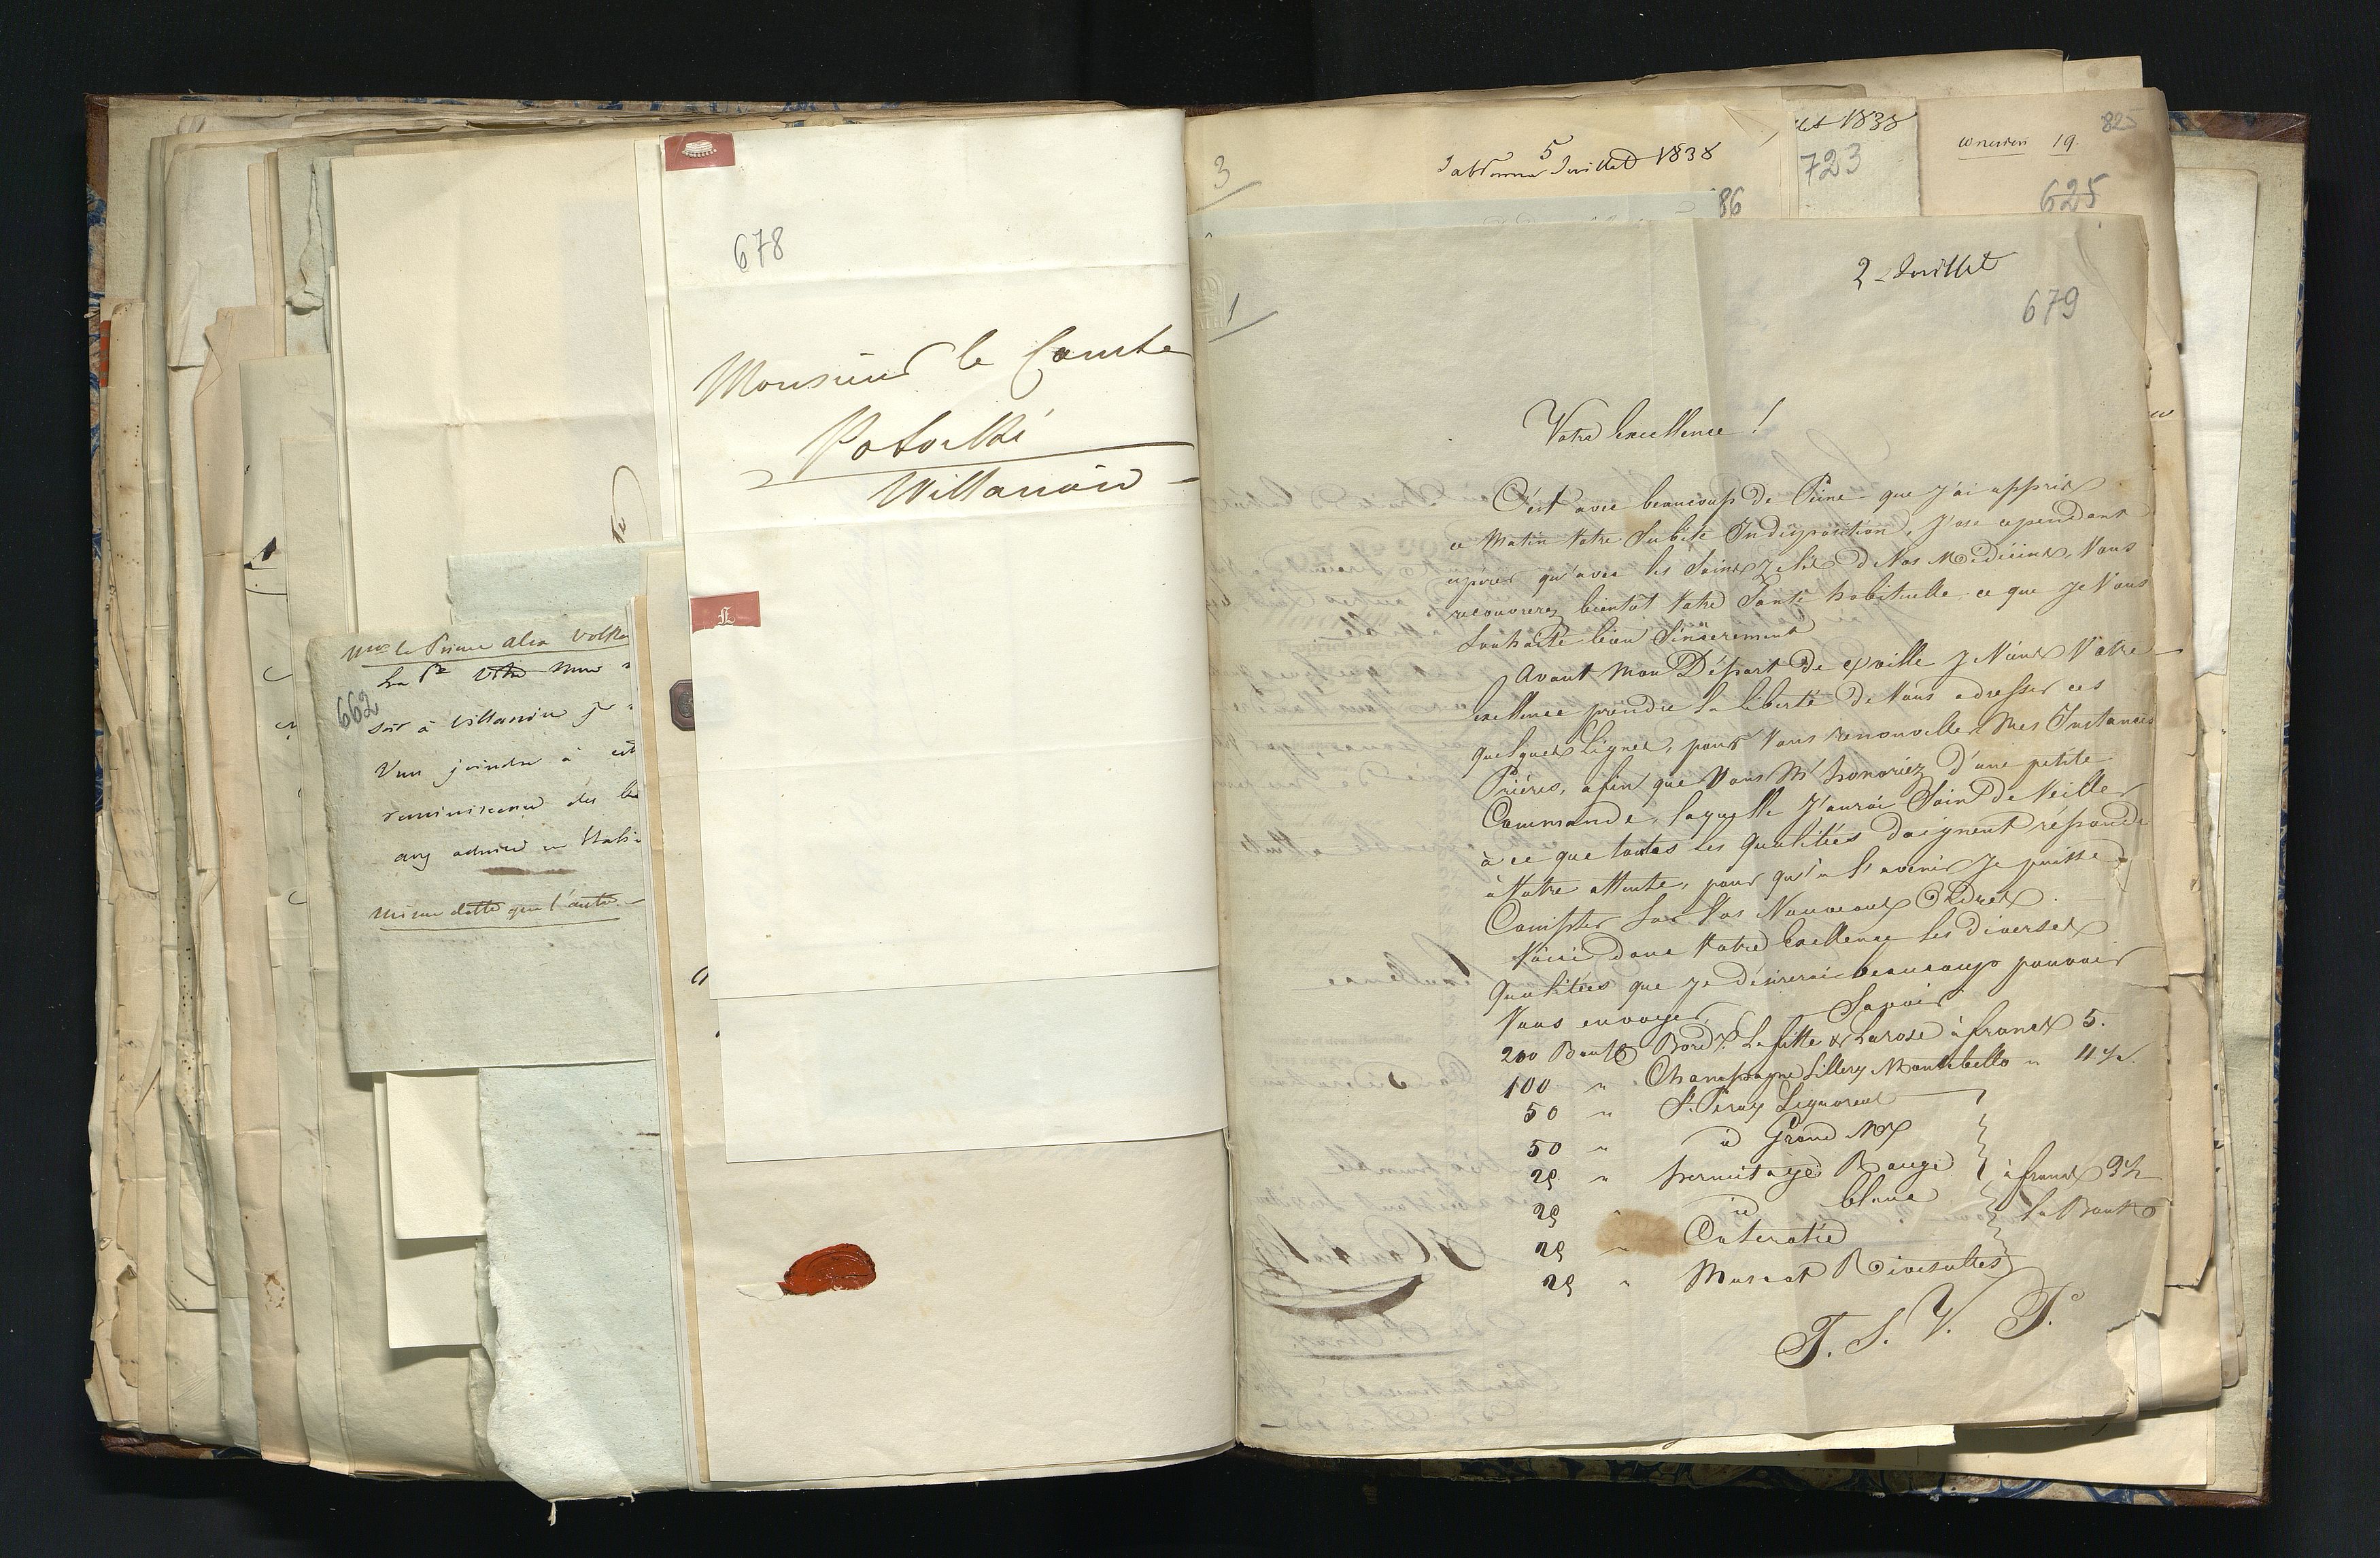 678
Monsieur le Comte
Potocki
Willanów
Mr le Prince Alex
662
soir à Villanow je
joindre à
même datte que l'autre
L
3
5 Juillet 1838
86
1838
723
19.
825
625
1
2 Juillet
679
Votre Excellence!
C'est avec beaucoup de Peine que J'ai appris
ce Matin Votre Subite Indisposition, J'ose cependant
espérer qu'avec les Soins Zelés de Vos Médecins, Vous
recouvrerez bientôt Votre Santé habituelle ce que Je Vous
Souhaite bien Sincerement
Avant Mon Départ de Ville Je Viens Votre
Excellence prendre la liberté de Vous adresser ces
quelques Lignes, pour Vous renouveller Mes Instances
Prières, afin que Vous M'honoriez d'une petite
Commande, laquelle J'aurai Soin de Veiller
à ce que toutes les Qualitées daignent répondre
à Votre attente, pour qu'à l'avenir Je puisse
Compter sur Vos Nouveaux Ordres.
Voici donc Votre Excellence les diverses
Qualitées que Je désirerai beaucoup pouvoir
Vous envoyer, Savoir
200 Boutlles Bordx Lafitte & Larose à francs 5.
100 " Champagne Sillery Montebello " 4 1/2.
50 " St. Peray
50 " id Grand Mx
25 " hermitage Rouge à francs 3 1/2
25 " id blanc la Boutlle
25 "
25 " Muscat Rivesaltes
T. S. V. P.